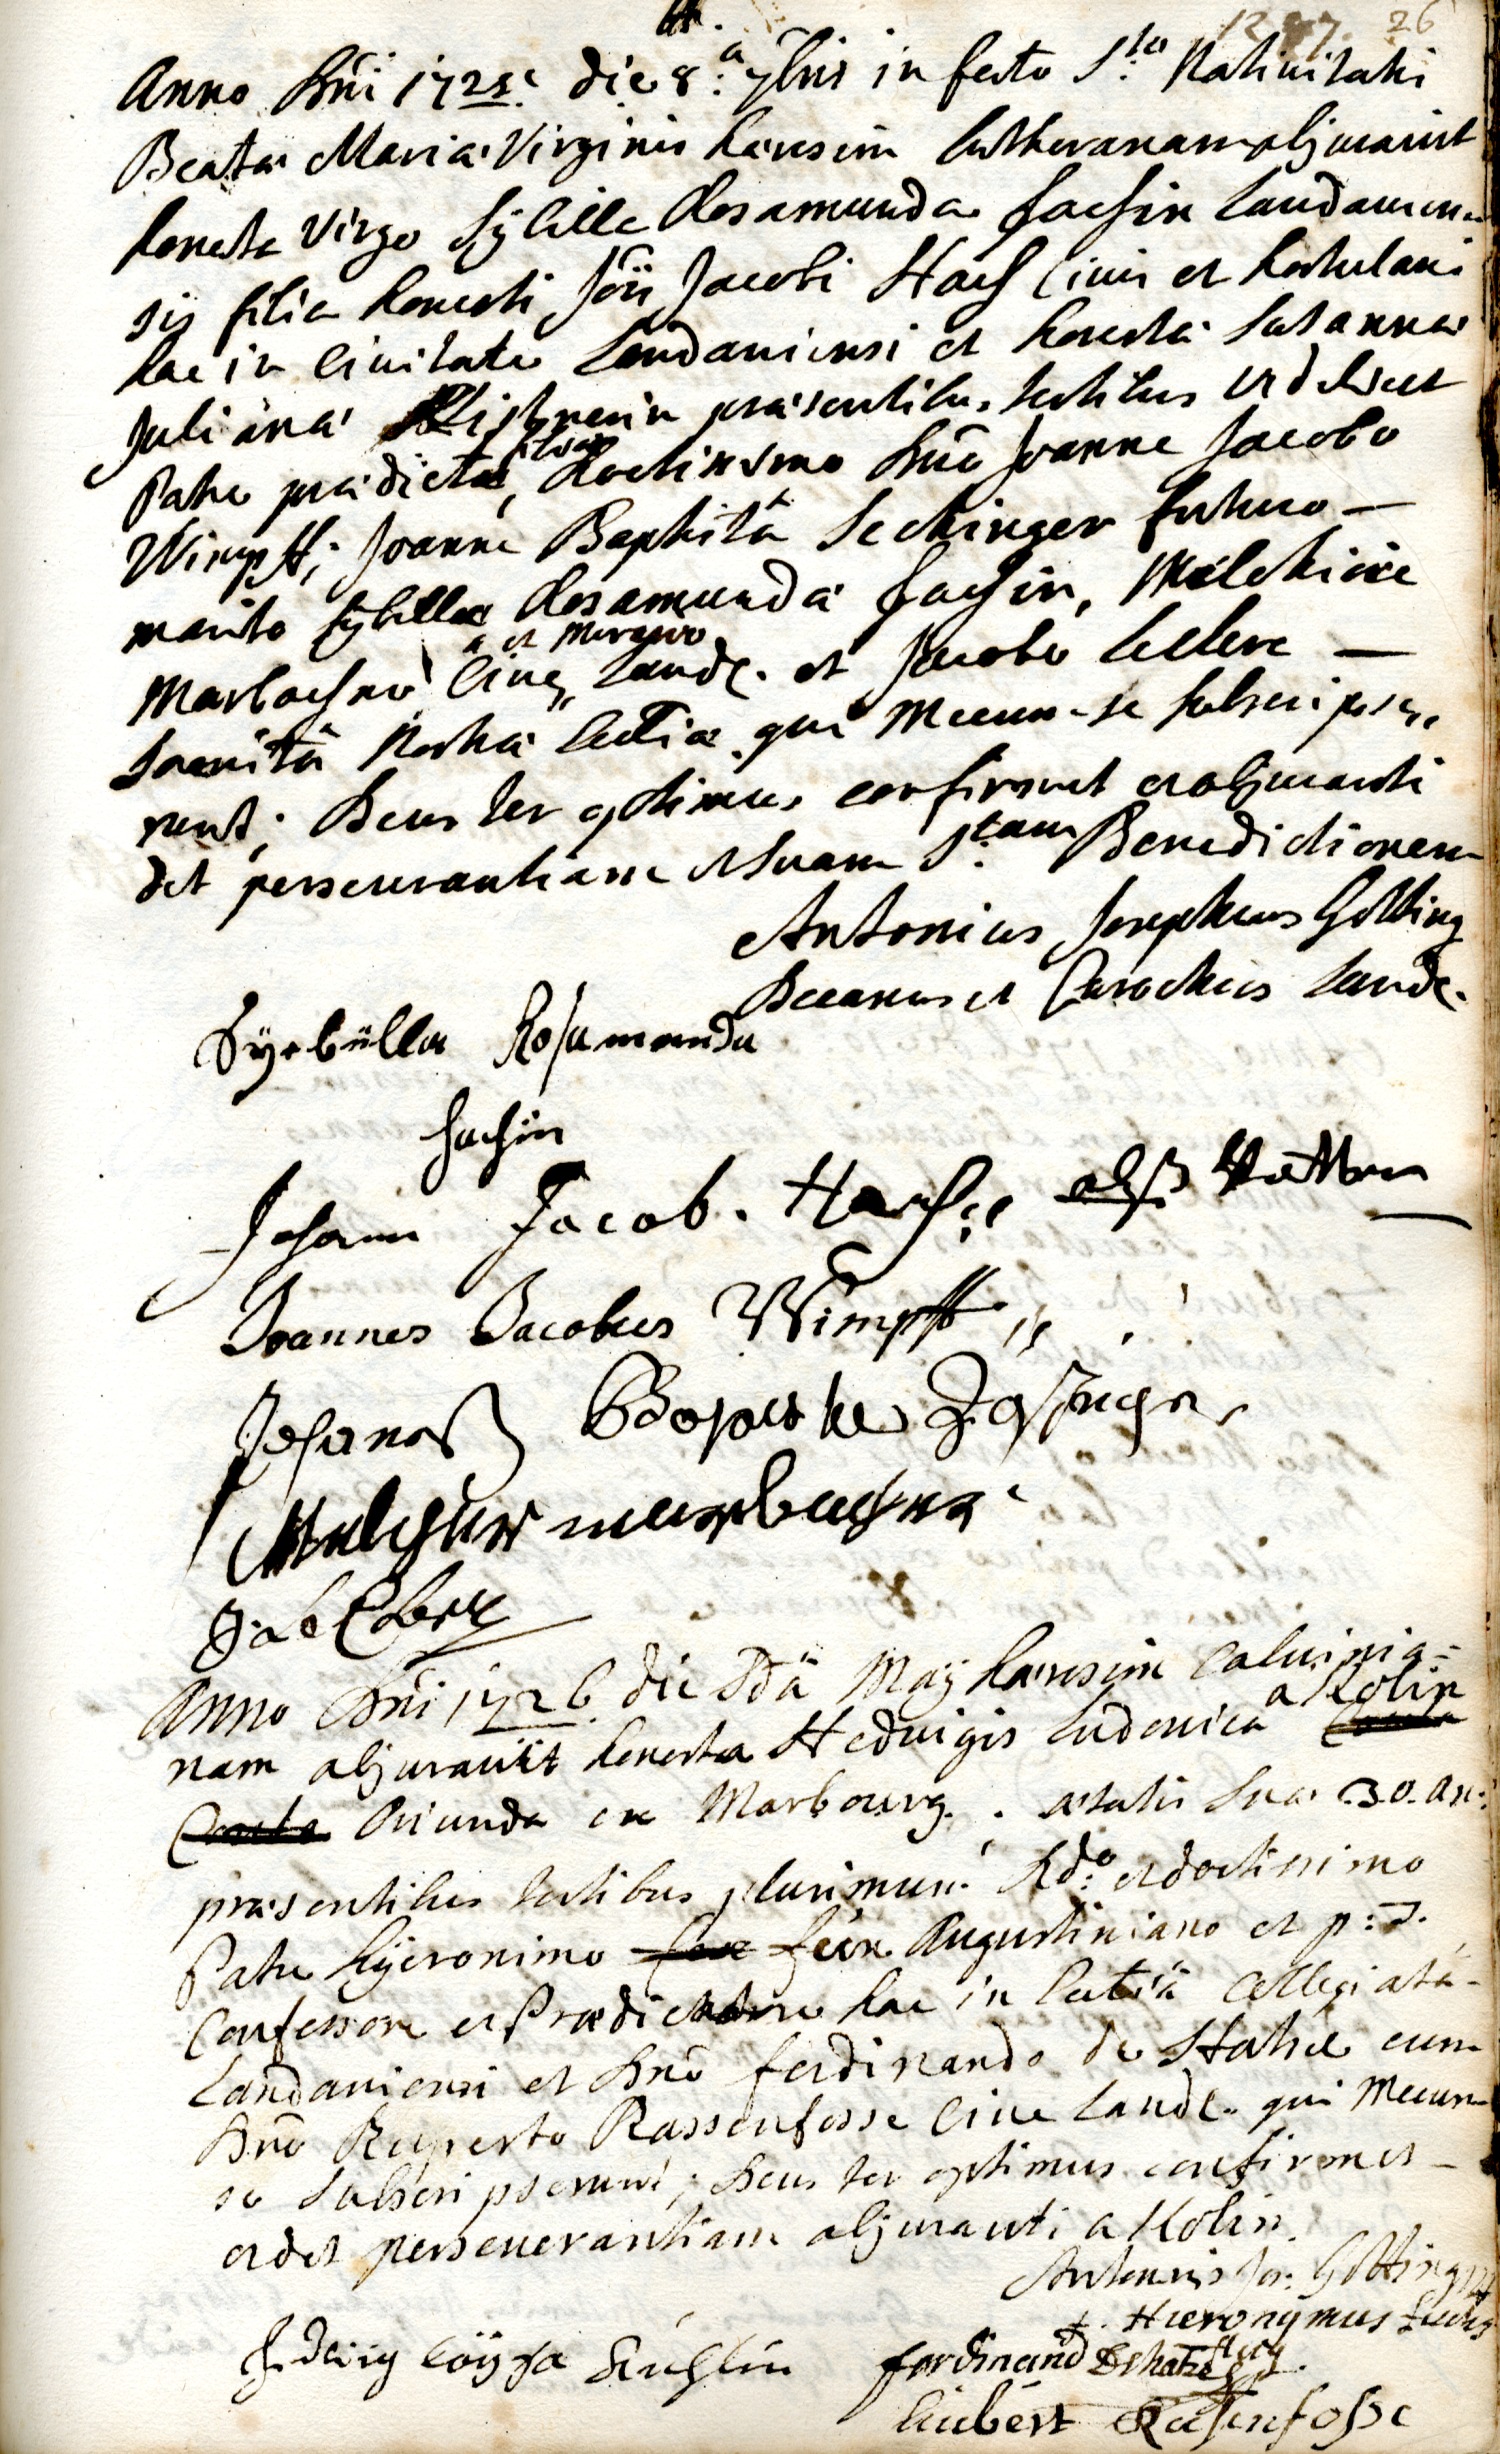 26
Anno Dni 1725 die 8.a 7bris in festo S.ta Nativitatis
Beatæ Mariæ Virginis hæresim Lutheranam abjuravit
honesta virgo Sybilla Rosamunda Hachin Landavien-
sis filia honesti Jois Jacobi Hach civis et hortulani
hac in civitate Landaviensi et honestæ Susannæ
Julianæ præsentibus testibus videlicet
Patre prædictæ filiæ, doctissimo Dno Joanne Jacobo
Wimpff, Joanne Baptistâ Seckinger futuro —
marito Sybillæ Rosamundæ Hachin, Melchiore
Marbachner cive et Murario Landa. et Jacobo Leclerc —
nostræ Ecclæ qui mecum se subscripse-
runt; Deus ter optimus confirmet et abjuranti
det perseverantiam et suam S.tam Benedictionem
Antonius Josephus Götting
Decanus et Parochus Landa.
Syebülla Rosamunda
Hachin
Johann Jacob Hach alß Vatter
Joannes Jacobus Wimpff
Johanneß Baptista
Melchior marbachner
J: Le Clerc
Anno Dni 1726 die 2dâ Maÿ hæresim Calvinia-
nam abjuravit honesta Hedwigis Ludovica a Kölin
oriunda ex Marbourg. ætatis suæ 30. an:
præsentibus testibus plurimum Rdo: et doctissimo
Patre Hyeronimo Augustiniano et p: t.
Confessore et Prædicatore hac in Ecclâ Collegiatâ
Landaviensi et Dno Ferdinando de Hatzel cum
Dno Ruperto Rassenfosse cive Landa. qui mecum
se subscripserunt; Deus ter optimus confirmet
et det perseverantiam abjuranti a Kölin.
Antonius Jos: Götting
f. Hieronymus
Hedwig
ferdinand
hubert Rasenfosse